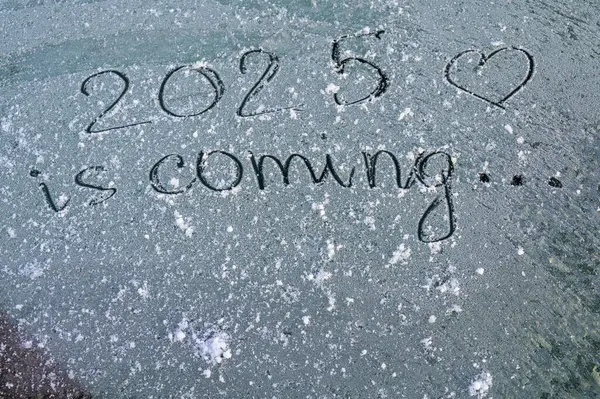 2025 ♡
is coming...